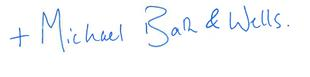 + Michael Bath & Wells.